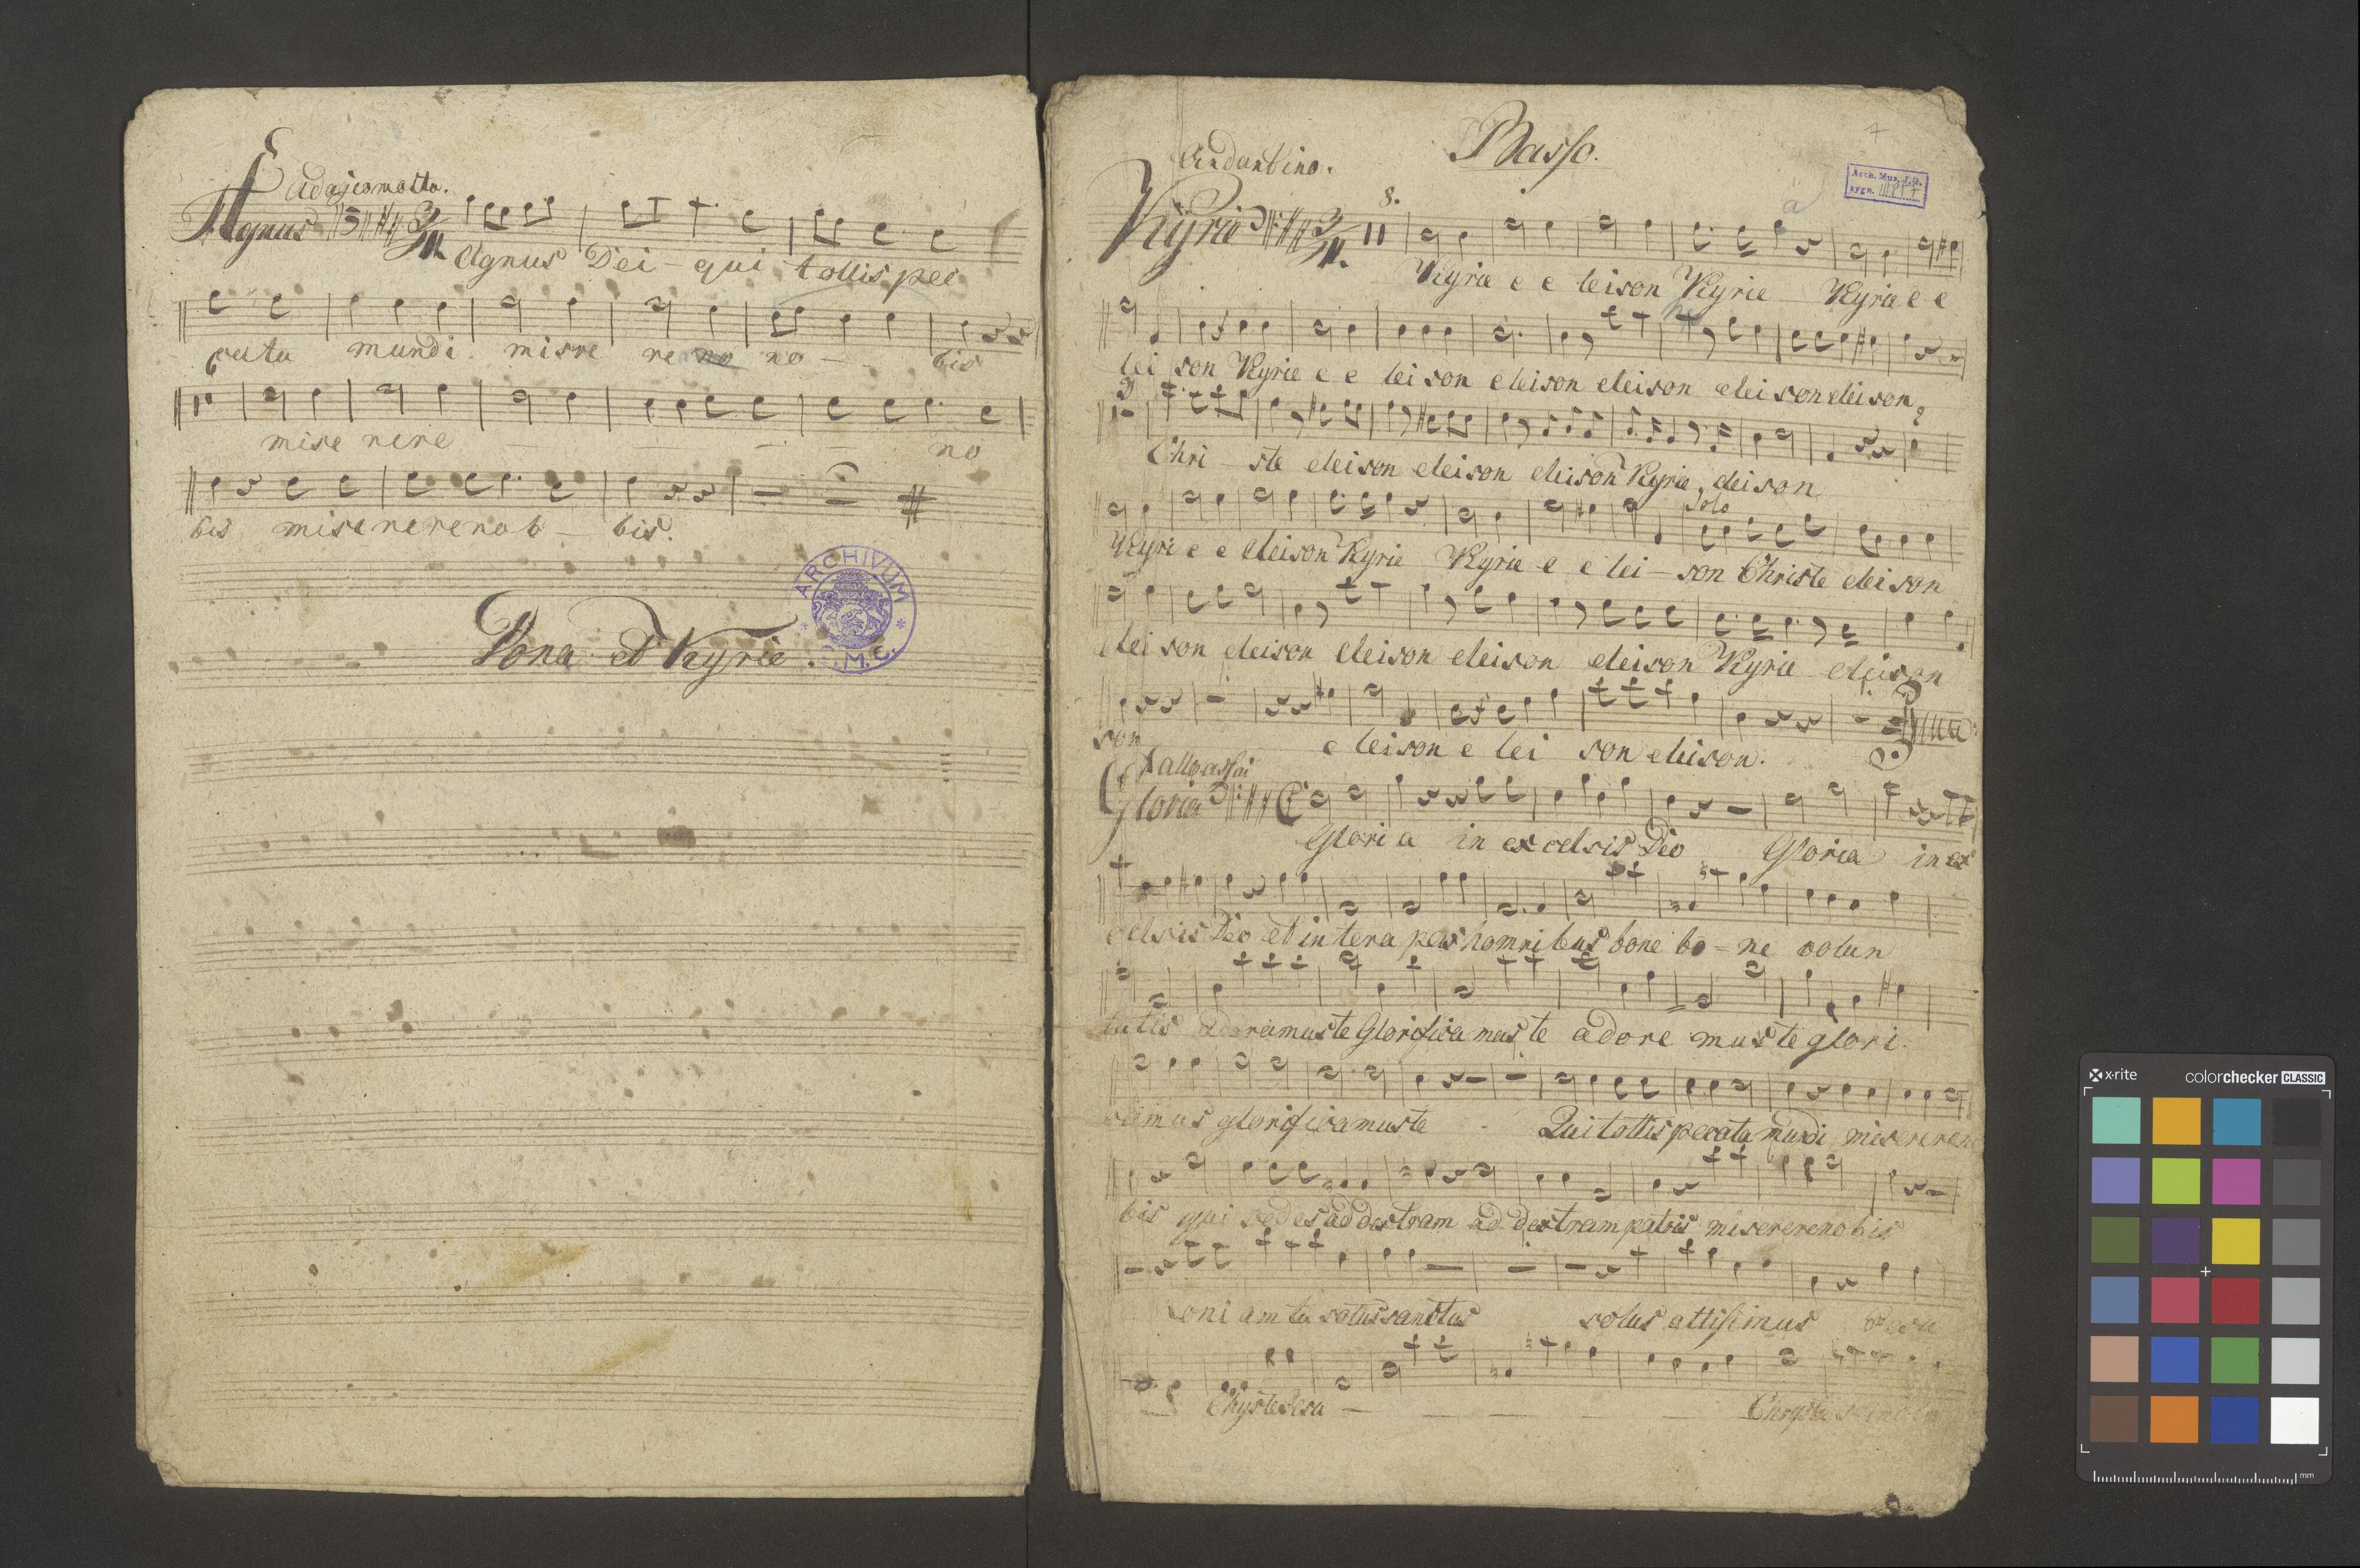 Adagio molto.
Agnus
Agnus Dei - qui tollis pec
cata mundi misre re no no - bis
mise rere - - - no
bis miserere nob - bis.
Dona ed Kyrie.
ARCHIVUM
Basso.
7
Andantino.
Arch. Mus. J.G.
sygn.
Kyrie 8.
Kyrie e e leison Kyrie Kyrie e e
lei son Kyrie e e lei son eleison eleison elei son eleison
Chri - ste eleison eleison eleison Kyrie eleison
Solo
Kyri e e eleison Kyrie Kyrie e e lei - son Christe eleison
elei son eleison eleison eleison eleison Kyrie eleison
son e leison e lei son eleison.
allo assai
Gloria
Glori a in excelsis Deo Gloria in ex
celsis Deo et in tera pax homnibus bone bo = ne volun
tatis adoramus te Glorifica mus te adore mus te glori.
camus glorificamus te - Qui tollis pecata mundi miserere
bis qui sedes ad dextram ad dextram patris miserere nobis
oni am tu solus sanctus solus altisimus
Chyste Jesu - - - -
x-rite colorchecker CLASSIC
mm